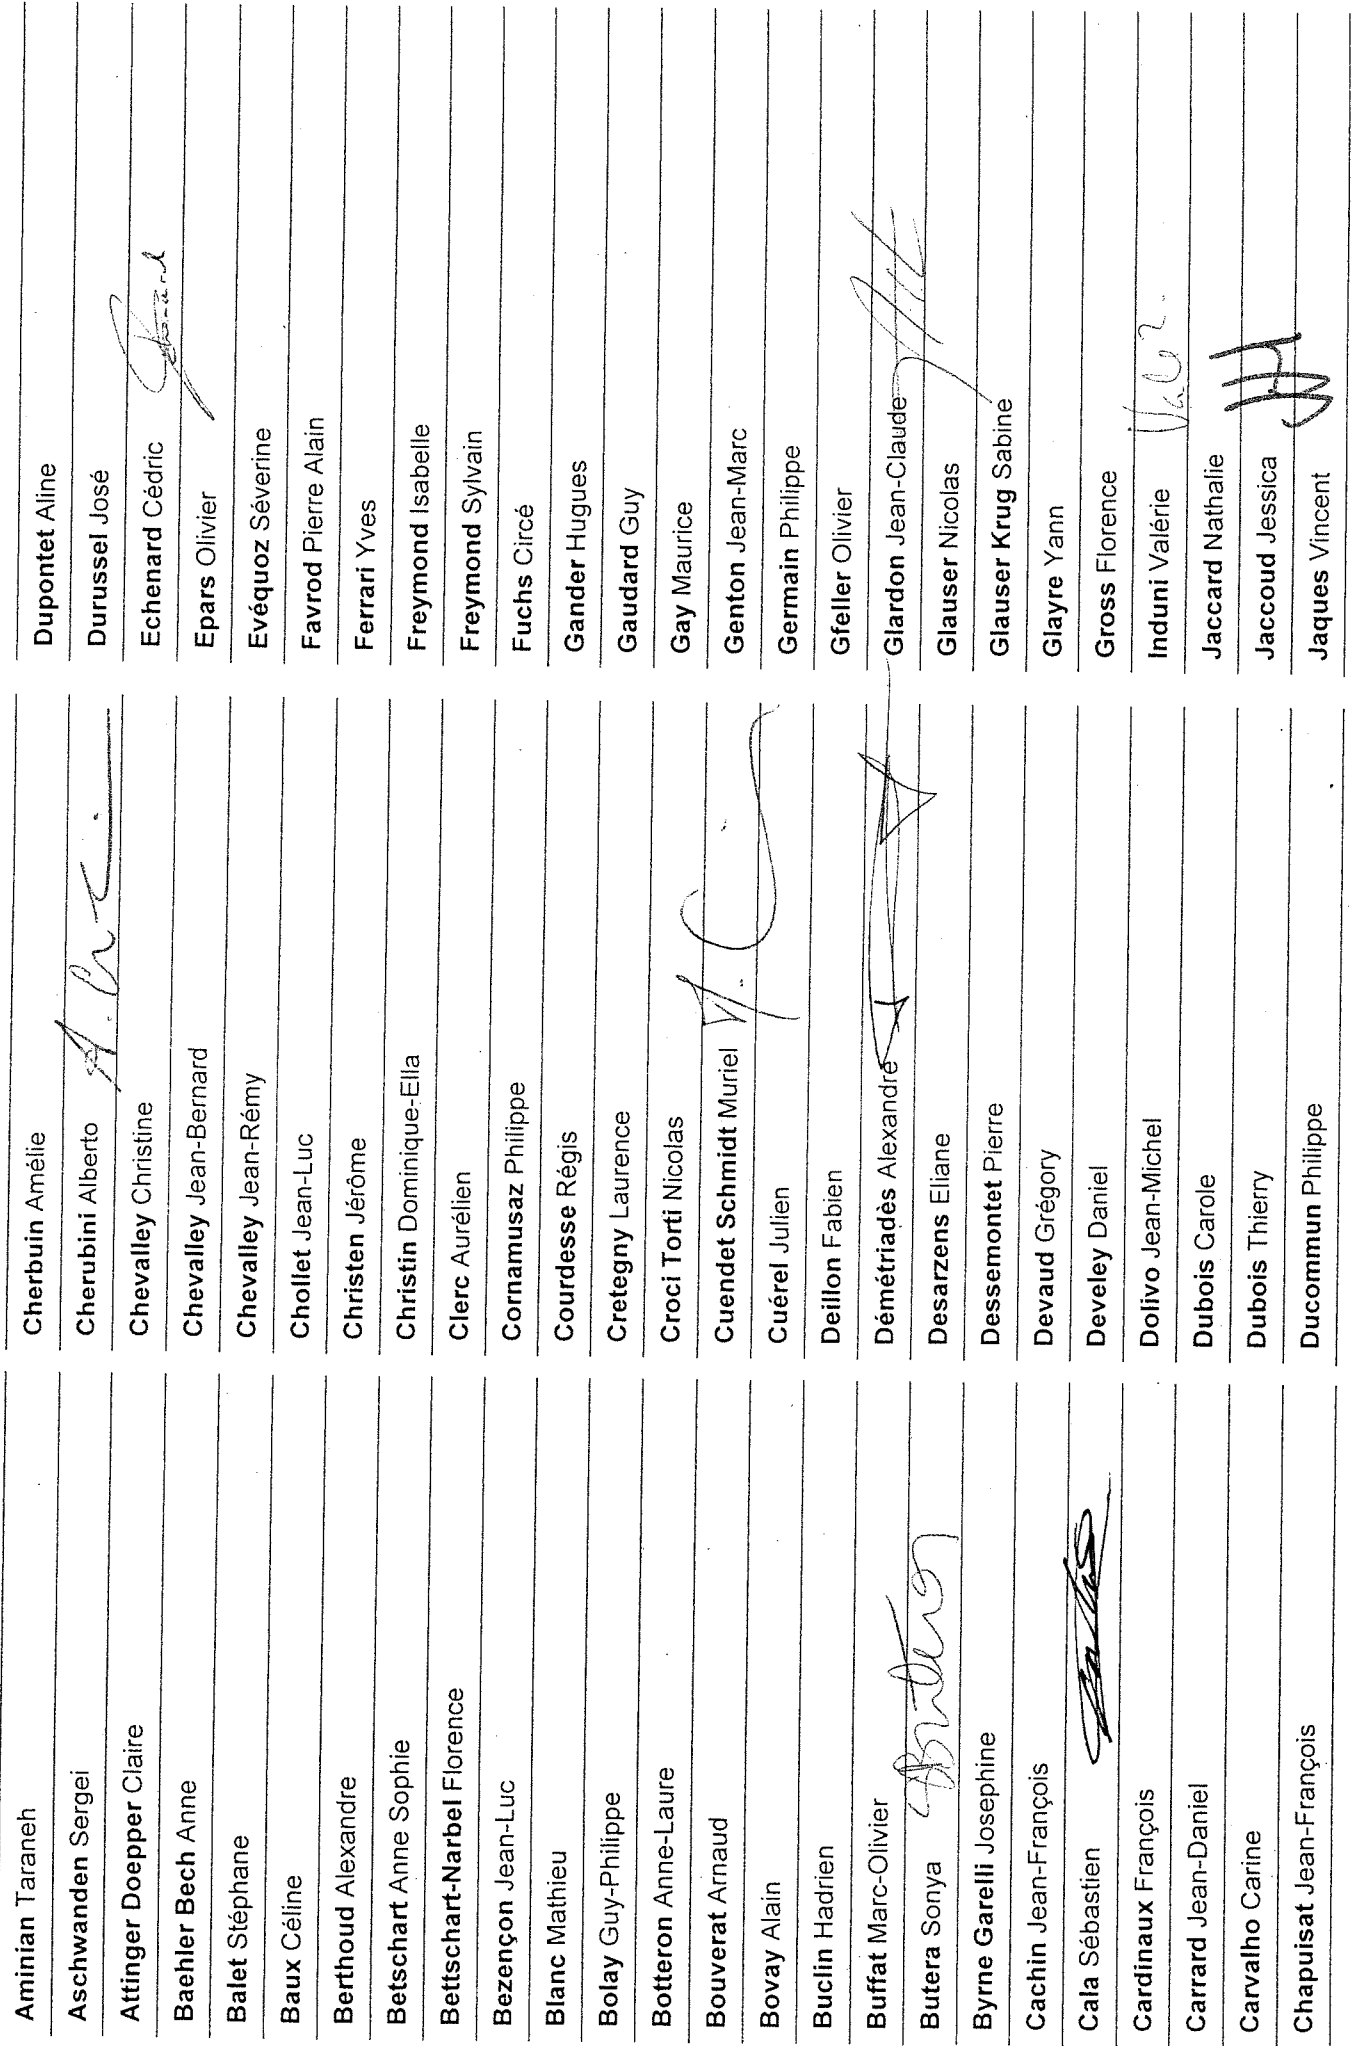 Aminian Taraneh
Aschwanden Sergei
Attinger Doepper Claire
Baehler Bech Anne
Balet Stéphane
Baux Céline
Berthoud Alexandre
Betschart Anne Sophie
Bettschart-Narbel Florence
Bezençon Jean-Luc
Blanc Mathieu
Bolay Guy-Philippe
Botteron Anne-Laure
Bouverat Arnaud
Bovay Alain
Buclin Hadrien
Buffat Marc-Olivier
Butera Sonya
Byrne Garelli Josephine
Cachin Jean-François
Cala Sébastien
Cardinaux François
Carrard Jean-Daniel
Carvalho Carine
Chapuisat Jean-François
Cherbuin Amélie
Cherubini Alberto
Chevalley Christine
Chevalley Jean-Bernard
Chevalley Jean-Rémy
Chollet Jean-Luc
Christen Jérôme
Christin Dominique-Ella
Clerc Aurélien
Cornamusaz Philippe
Courdesse Régis
Cretegny Laurence
Croci Torti Nicolas
Cuendet Schmidt Muriel
Cuérel Julien
Deillon Fabien
Démétriadès Alexandre
Desarzens Eliane
Dessemontet Pierre
Devaud Grégory
Develey Daniel
Dolivo Jean-Michel
Dubois Carole
Dubois Thierry
Ducommun Philippe
Dupontet Aline
Durussel José
Echenard Cédric
Epars Olivier
Evéquoz Séverine
Favrod Pierre Alain
Ferrari Yves
Freymond Isabelle
Freymond Sylvain
Fuchs Circé
Gander Hugues
Gaudard Guy
Gay Maurice
Genton Jean-Marc
Germain Philippe
Gfeller Olivier
Glardon Jean-Claude
Glauser Nicolas
Glauser Krug Sabine
Glayre Yann
Gross Florence
Induni Valérie
Jaccard Nathalie
Jaccoud Jessica
Jaques Vincent